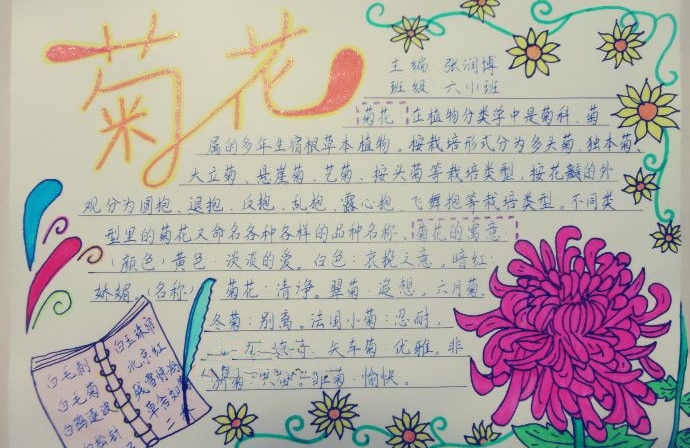 菊花
主编 张润博
班级 六小班
菊花:在植物分类学中是菊科、菊
属的多年生宿根草本植物。按栽培形式分为多头菊、独本菊、
大立菊、悬崖菊、艺菊、接头菊等栽培类型,按花瓣的外
观分为圆抱、退抱、反抱、乱抱、露心抱、飞舞抱等栽培类型。不同类
型里的菊花又命名各种各样的品种名称。菊花的寓意:
(颜色)黄色:淡淡的爱。白色:哀挽之意。暗红:
娇媚。(名称) 菊花:清净。翠菊:追想。六月菊
冬菊:别离。法国小菊:忍耐。
矢车菊:优雅。非
洲菊: 雏菊:愉快。
白毛刺
白毛菊
白鸥逐波
白松针
白玉珠帘
北京红
二乔